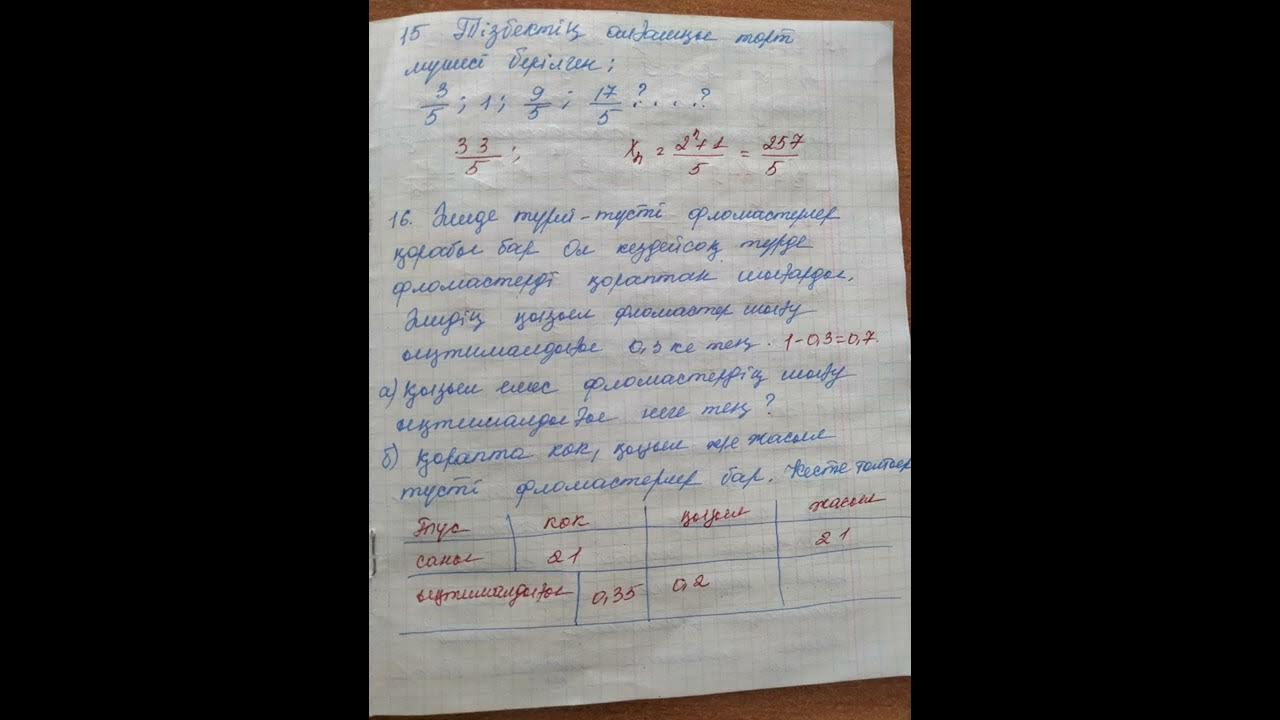 15 Тізбектің алғашқы торт
мүшесі берілген;
3/5 ; 1 ; 9/5 ; 17/5 ? . . . . ?
33/5 ; Xn = 2ⁿ+1/5 = 257/5
16. Әлиде түрлі-түсті фломастерлер
қорабы бар Ол кездейсоқ түрде
фломастерді қораптан шығарды.
Әлидің қызыл фломастер шығу
ықтималдығы 0,3 ке тең. 1-0,3=0,7.
а) Қызыл емес фломастердің шығу
ықтималдығы неге тең?
б) Қорапта көк, қызыл әрі жасыл
түсті фломастерлер бар. Кесте толтыр
Түс көк қызыл жасыл
саны 21 21
ықтималдығы 0,35 0,2